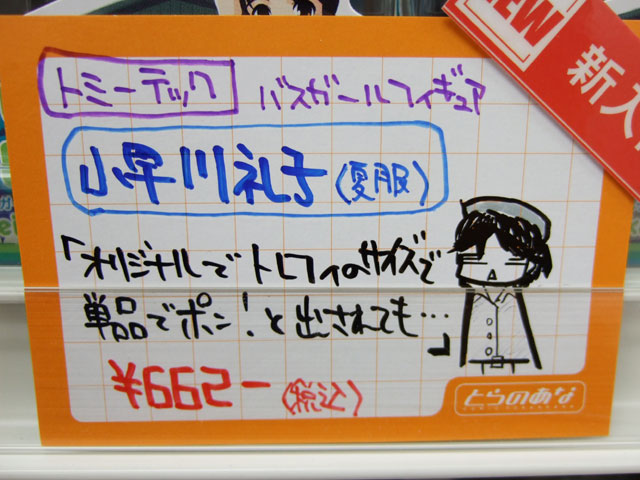 NEW
新入
トミーテック バスガールフィギュア
小早川礼子(夏服)
「オリジナルでトレフィのサイズで
単品でポン!と出されても…」
¥662-(税込)
とらのあな